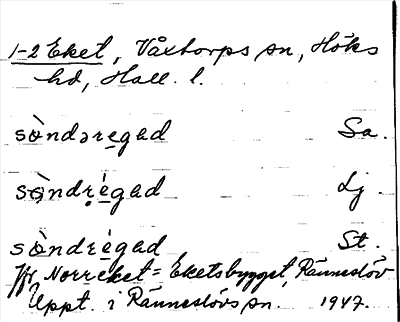 1-2 Eket, Våxtorps sn, Höks
hd, Hall. l.
sòndəregad Sa.
sòndrègad Lj.
sòndrègad St.
Jfr Norreket = Eketsbygget, Ränneslöv
Uppt. i Ränneslövs sn. 1947.